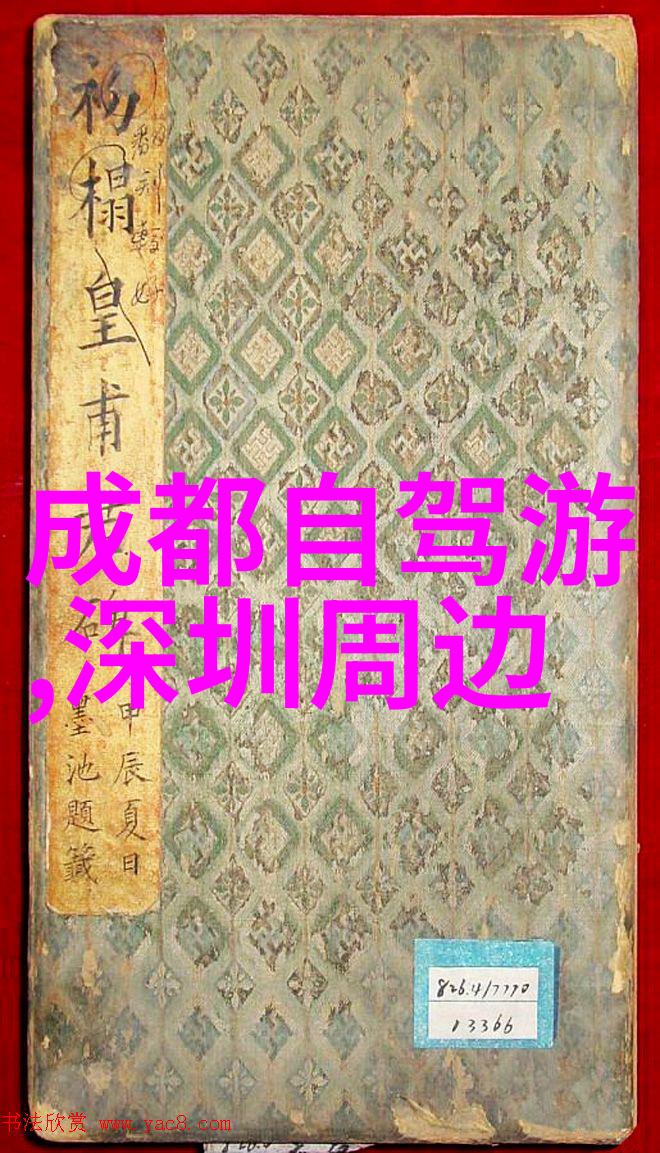 初榻皇甫君碑
甲辰夏日
墨池題籤
成都自驾游
,深圳周边
826.4/7770
13366
书法欣赏 www.yac8.com